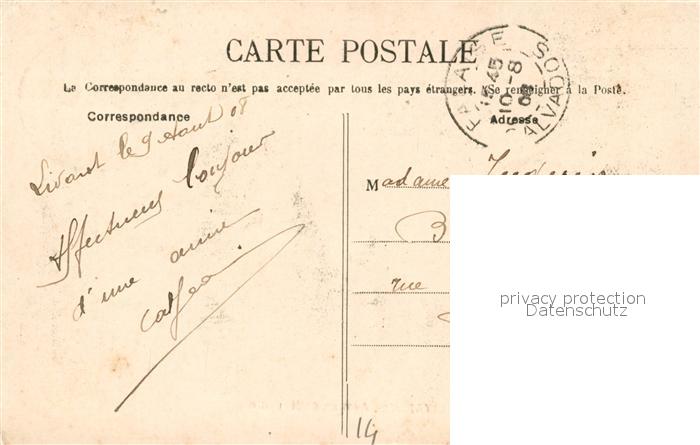 CARTE POSTALE
La Correspondance au recto n'est pas acceptée par tous les pays étrangers. (Se renseigner à la Poste.
Correspondance
Adresse
FALAISE
15 45
10 - 8
08
CALVADOS
Livarot le 9 Aout 08
Affectueux bonjour
d'une amie
Madame
B
rue
privacy protection
Datenschutz
14